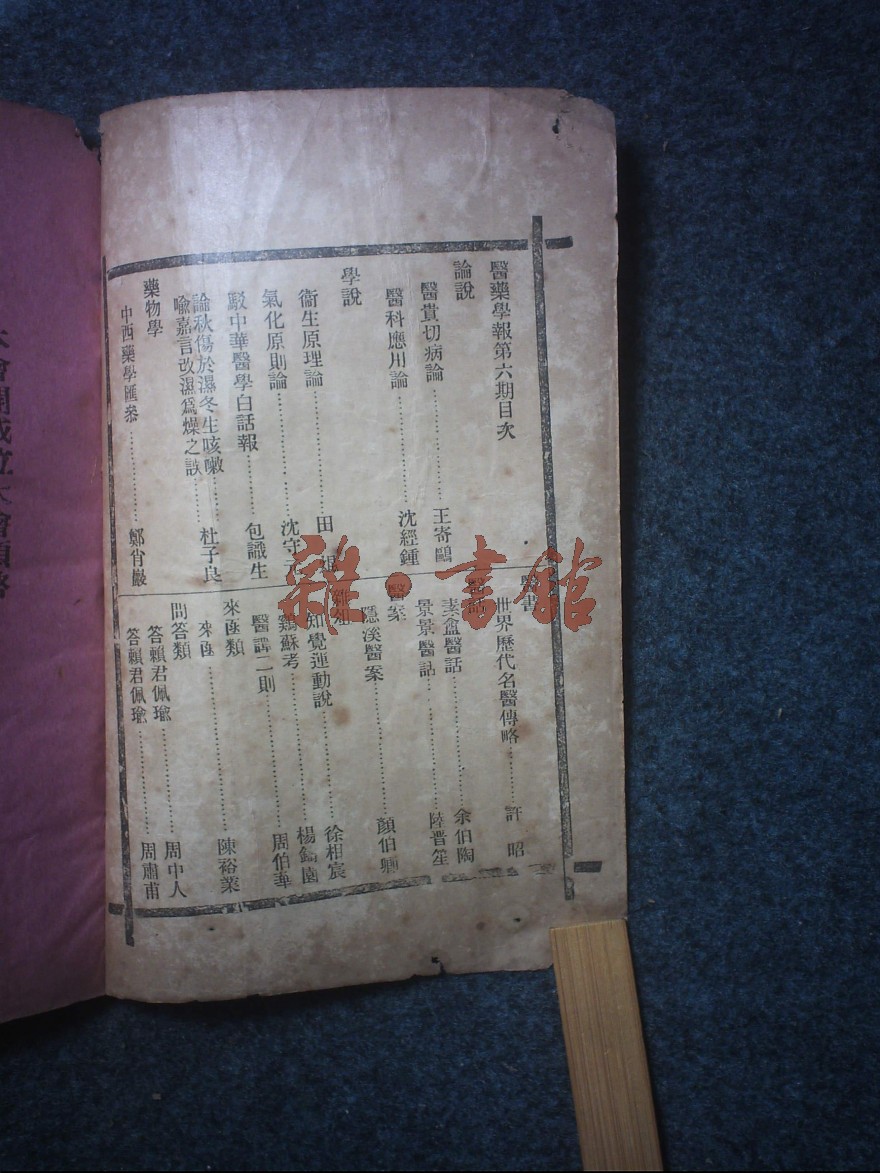 醫藥學報第六期目次
論說
醫貴切病論⋯⋯⋯⋯王寄鷗
醫科應用論⋯⋯⋯⋯沈經鍾
學說
衞生原理論⋯⋯⋯⋯田
氣化原則論⋯⋯⋯⋯沈守
駁中華醫學白話報⋯⋯⋯⋯包識生
論秋傷於濕冬生咳嗽
喩嘉言改濕爲燥之誤⋯⋯⋯⋯杜子良
藥物學
中西藥學匯參⋯⋯⋯⋯鄭肖巖
醫書
世界歷代名醫傳略⋯⋯⋯⋯許昭
醫話
素盦醫話⋯⋯⋯⋯余伯陶
景景醫話⋯⋯⋯⋯陸晋笙
醫案
隱溪醫案⋯⋯⋯⋯顏伯卿
雜俎
知覺運動說⋯⋯⋯⋯徐相宸
鷄蘇考⋯⋯⋯⋯楊鑄園
醫譚二則⋯⋯⋯⋯周伯華
來函類
來函⋯⋯⋯⋯陳裕業
問答類
答賴君佩瑜⋯⋯⋯⋯周中人
答賴君佩瑜⋯⋯⋯⋯周肅甫
雜·書館